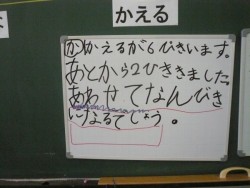 かえる
かかえるが6ぴきいます。
あとから2ひききました。
あわせてなんびき
になるでしょう。